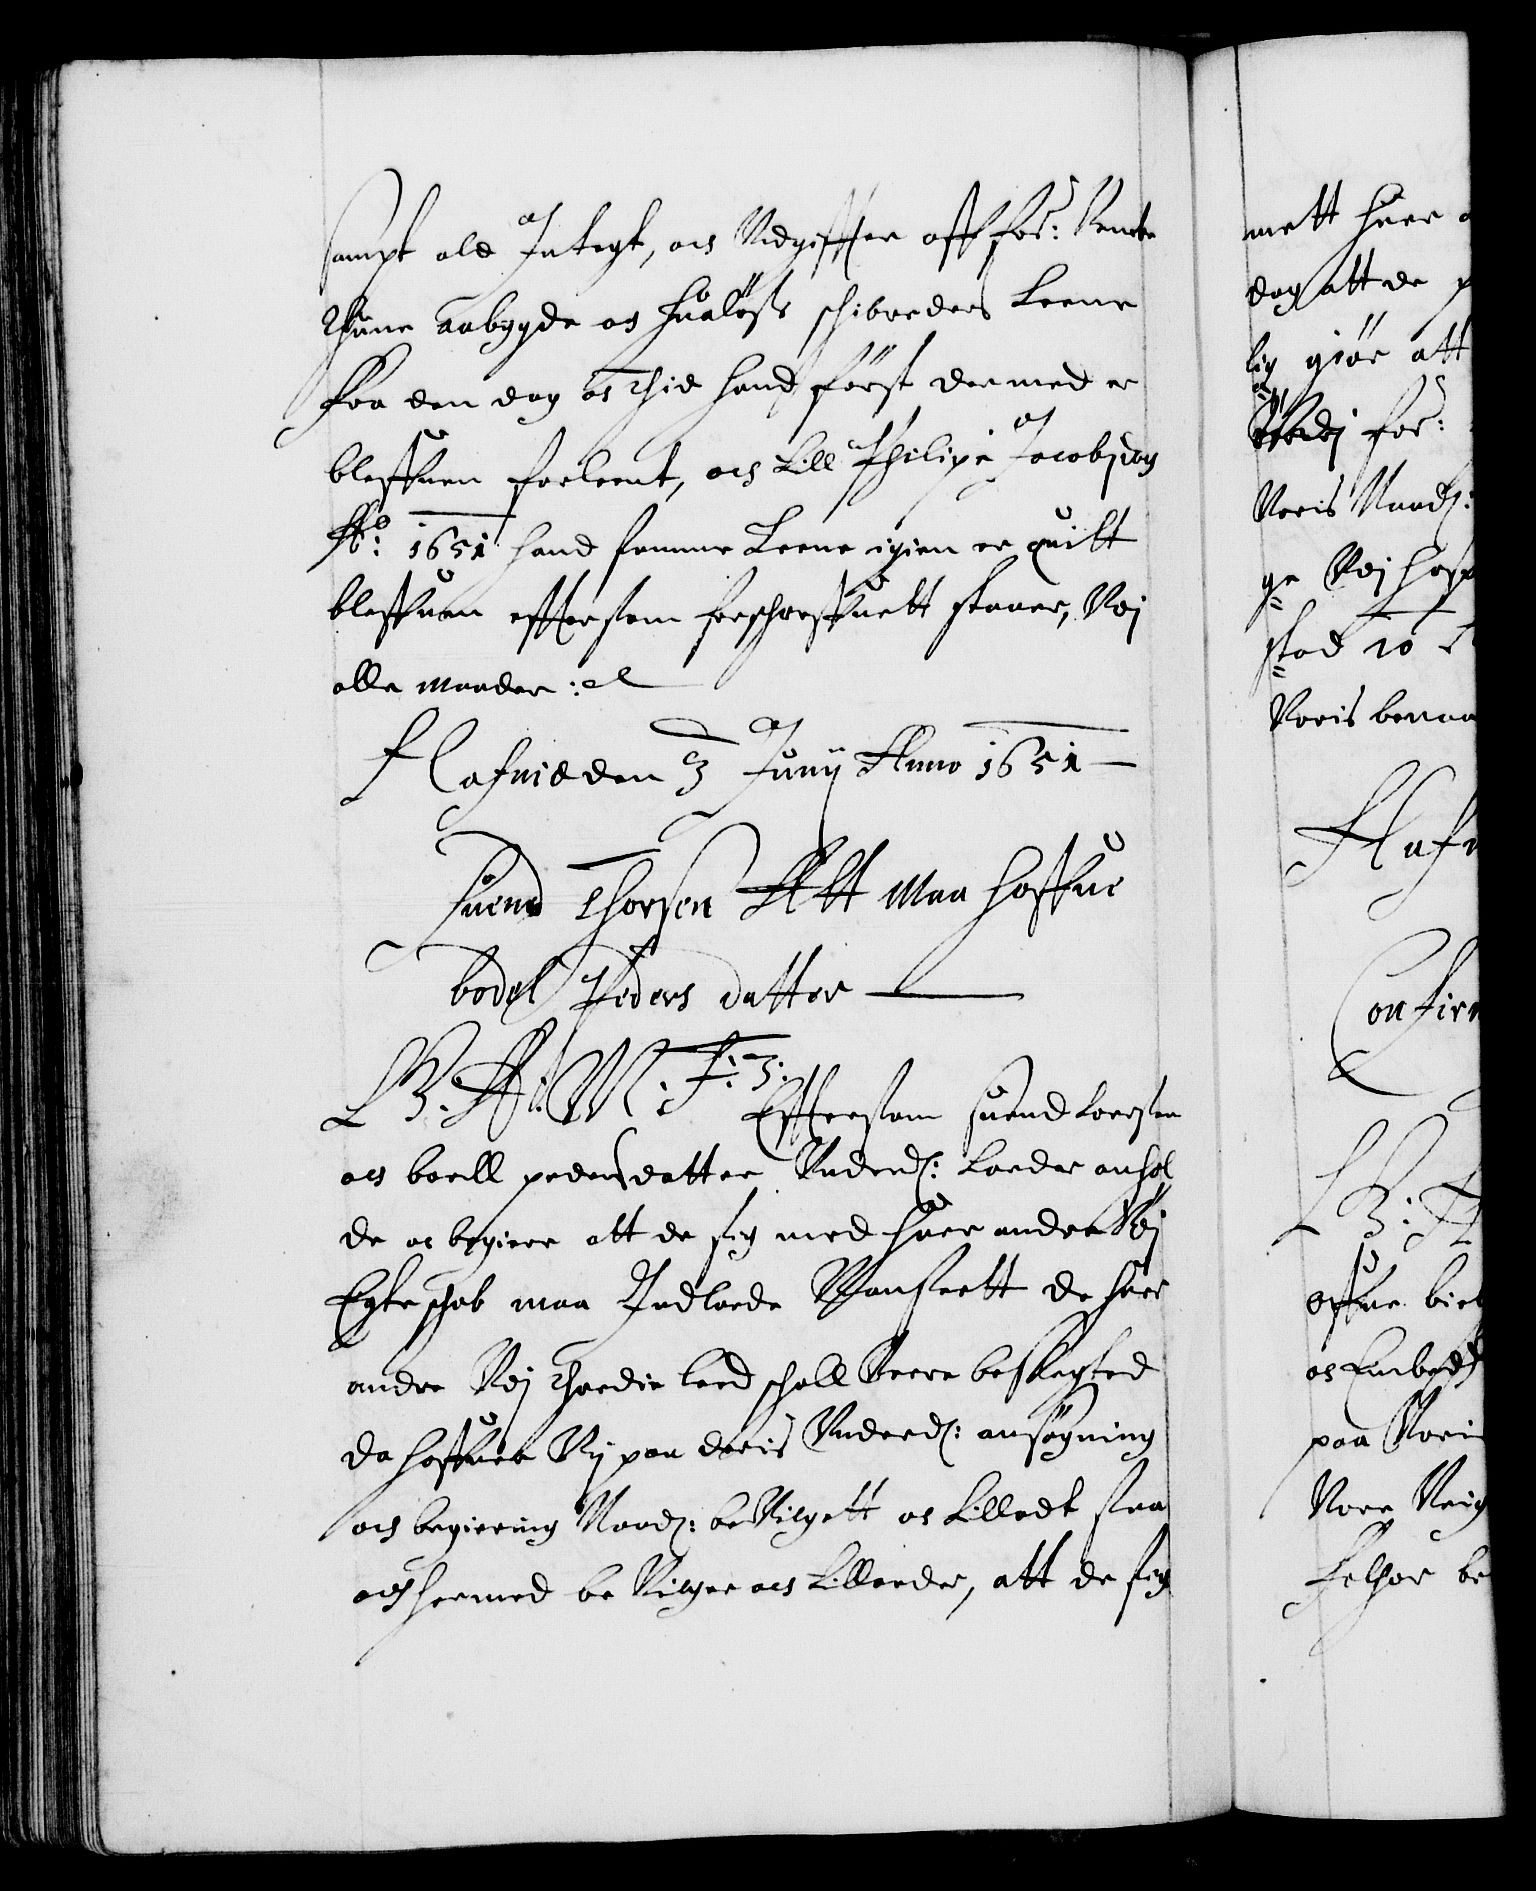 sampt ald Indtegt, och Udgifft aff for: Romb
Thune aabygde og Hualøss schibreders Leene
fra den dag og thid hand først dermed er
bleffuen forleent, och till Philipi Jacobj dag
Ao: 1651 hand samme Leene igien er quitt
bleffuen effterson forschreffuett staaer, Vdj
alle maader:
Hafnie den 3 Junij Anno 1651
Suend Thorsen Att maa Haffue
bodel Peders datter
V G: A: W: F: 3: Effterson Suend Loersen
och boell peders datter Underd: Lader anhol
de oc begiere att de sig med huer andre Udj
Egteschab maa Indlade Uanseett de huer
andre Udj thredie leed schall Verre beslegted
da haffuer Vj paa deris Underd: ansøgning
och begiering Naad: beVilgett oc tilladt saa
och hermed beVilger och tillader, att de sig
mett huer
dog att de
lig giør att
for:
Voris Naad:
ge Udj Hosp
stad 10
Voris benaa
Hafn
Confirm
V G: A
offue bre
oc Embed
paa Vori
Vore Reig
felger be